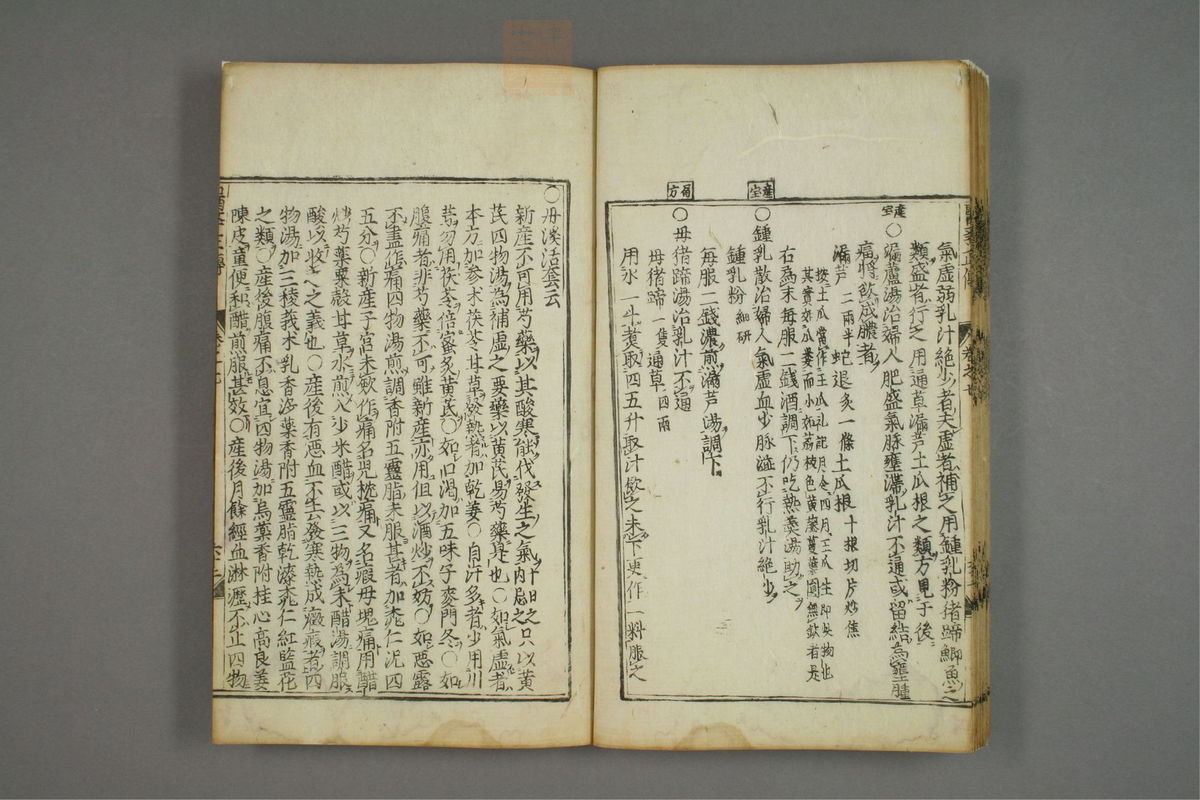 氣虛弱乳汁絶少者夫虛者補之用鍾乳粉猪蹄鯽魚之
類盛者行之用通草漏芦土瓜根之類方見于後
產宝
○漏蘆湯治婦人肥盛氣脉壅滯乳汁不通或留結為癰腫
痛將飲成膿者
漏芦 二兩半 蛇退炙一條 土瓜根 十根切片炒焦
按土瓜當作王瓜礼記月令四月王瓜生即此物也
其實奴瓜蔞而小如荔枝色黄葉蔓葉圓無缺者是
右為末每服二錢酒調下仍吃熱羹湯助之
產宝
○鍾乳散治婦人氣虛血少脉澁不行乳汁絶少
鍾乳粉 細研
每服二錢濃煎漏芦湯調下
局方
○母猪蹄湯治乳汁不通
母猪蹄 一隻 通草 四兩
用水一斗煮取四五升取汁飲之未下更作一料服之
○丹溪活套云
新産不可用芍藥以其酸寒能伐發生之氣十日之内忌之只以黄
芪四物湯為補虛之要藥以黄芪易芍藥是也○如氣虛者
本方加参术茯苓甘草發熱者加乾姜○自汗多者少用川
芎勿用茯苓倍蜜炙黄芪○如口渴加五味子麥門冬○如
腹痛者非芍藥不可雖新産亦用但以酒炒不妨○如惡露
不盡作痛四物湯煎調香附五靈脂末服甚者加桃仁泥四
五分○新産子宮未斂作痛名児枕痛又名瘕母塊痛用醋
炒芍藥粟殼甘草水煎入少米醋或以三物為末醋湯調服
酸以收之之義也○産後有惡血不去發寒熱成癥瘕者四
物湯加三稜莪朮乳香沒藥香附五靈脂乾漆桃仁紅藍花
之類○産後腹痛不息宜四物湯加烏藥香附桂心高良姜
陳皮童便和醋煎服甚效○産後月餘經血淋瀝不止四物